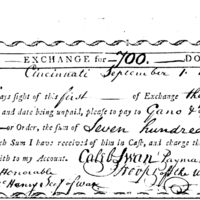 EXCHANGE for 700. DO
Cincinnati September 1.
ays sight of this first of Exchange
and date being unpaid, please to pay to Gano &
or Order, the sum of Seven hundred
such Sum I have received of him in Cash, and charge th
with to my Account. Caleb Swan Paym
Honorable Troops of the
McHenry Sec of War